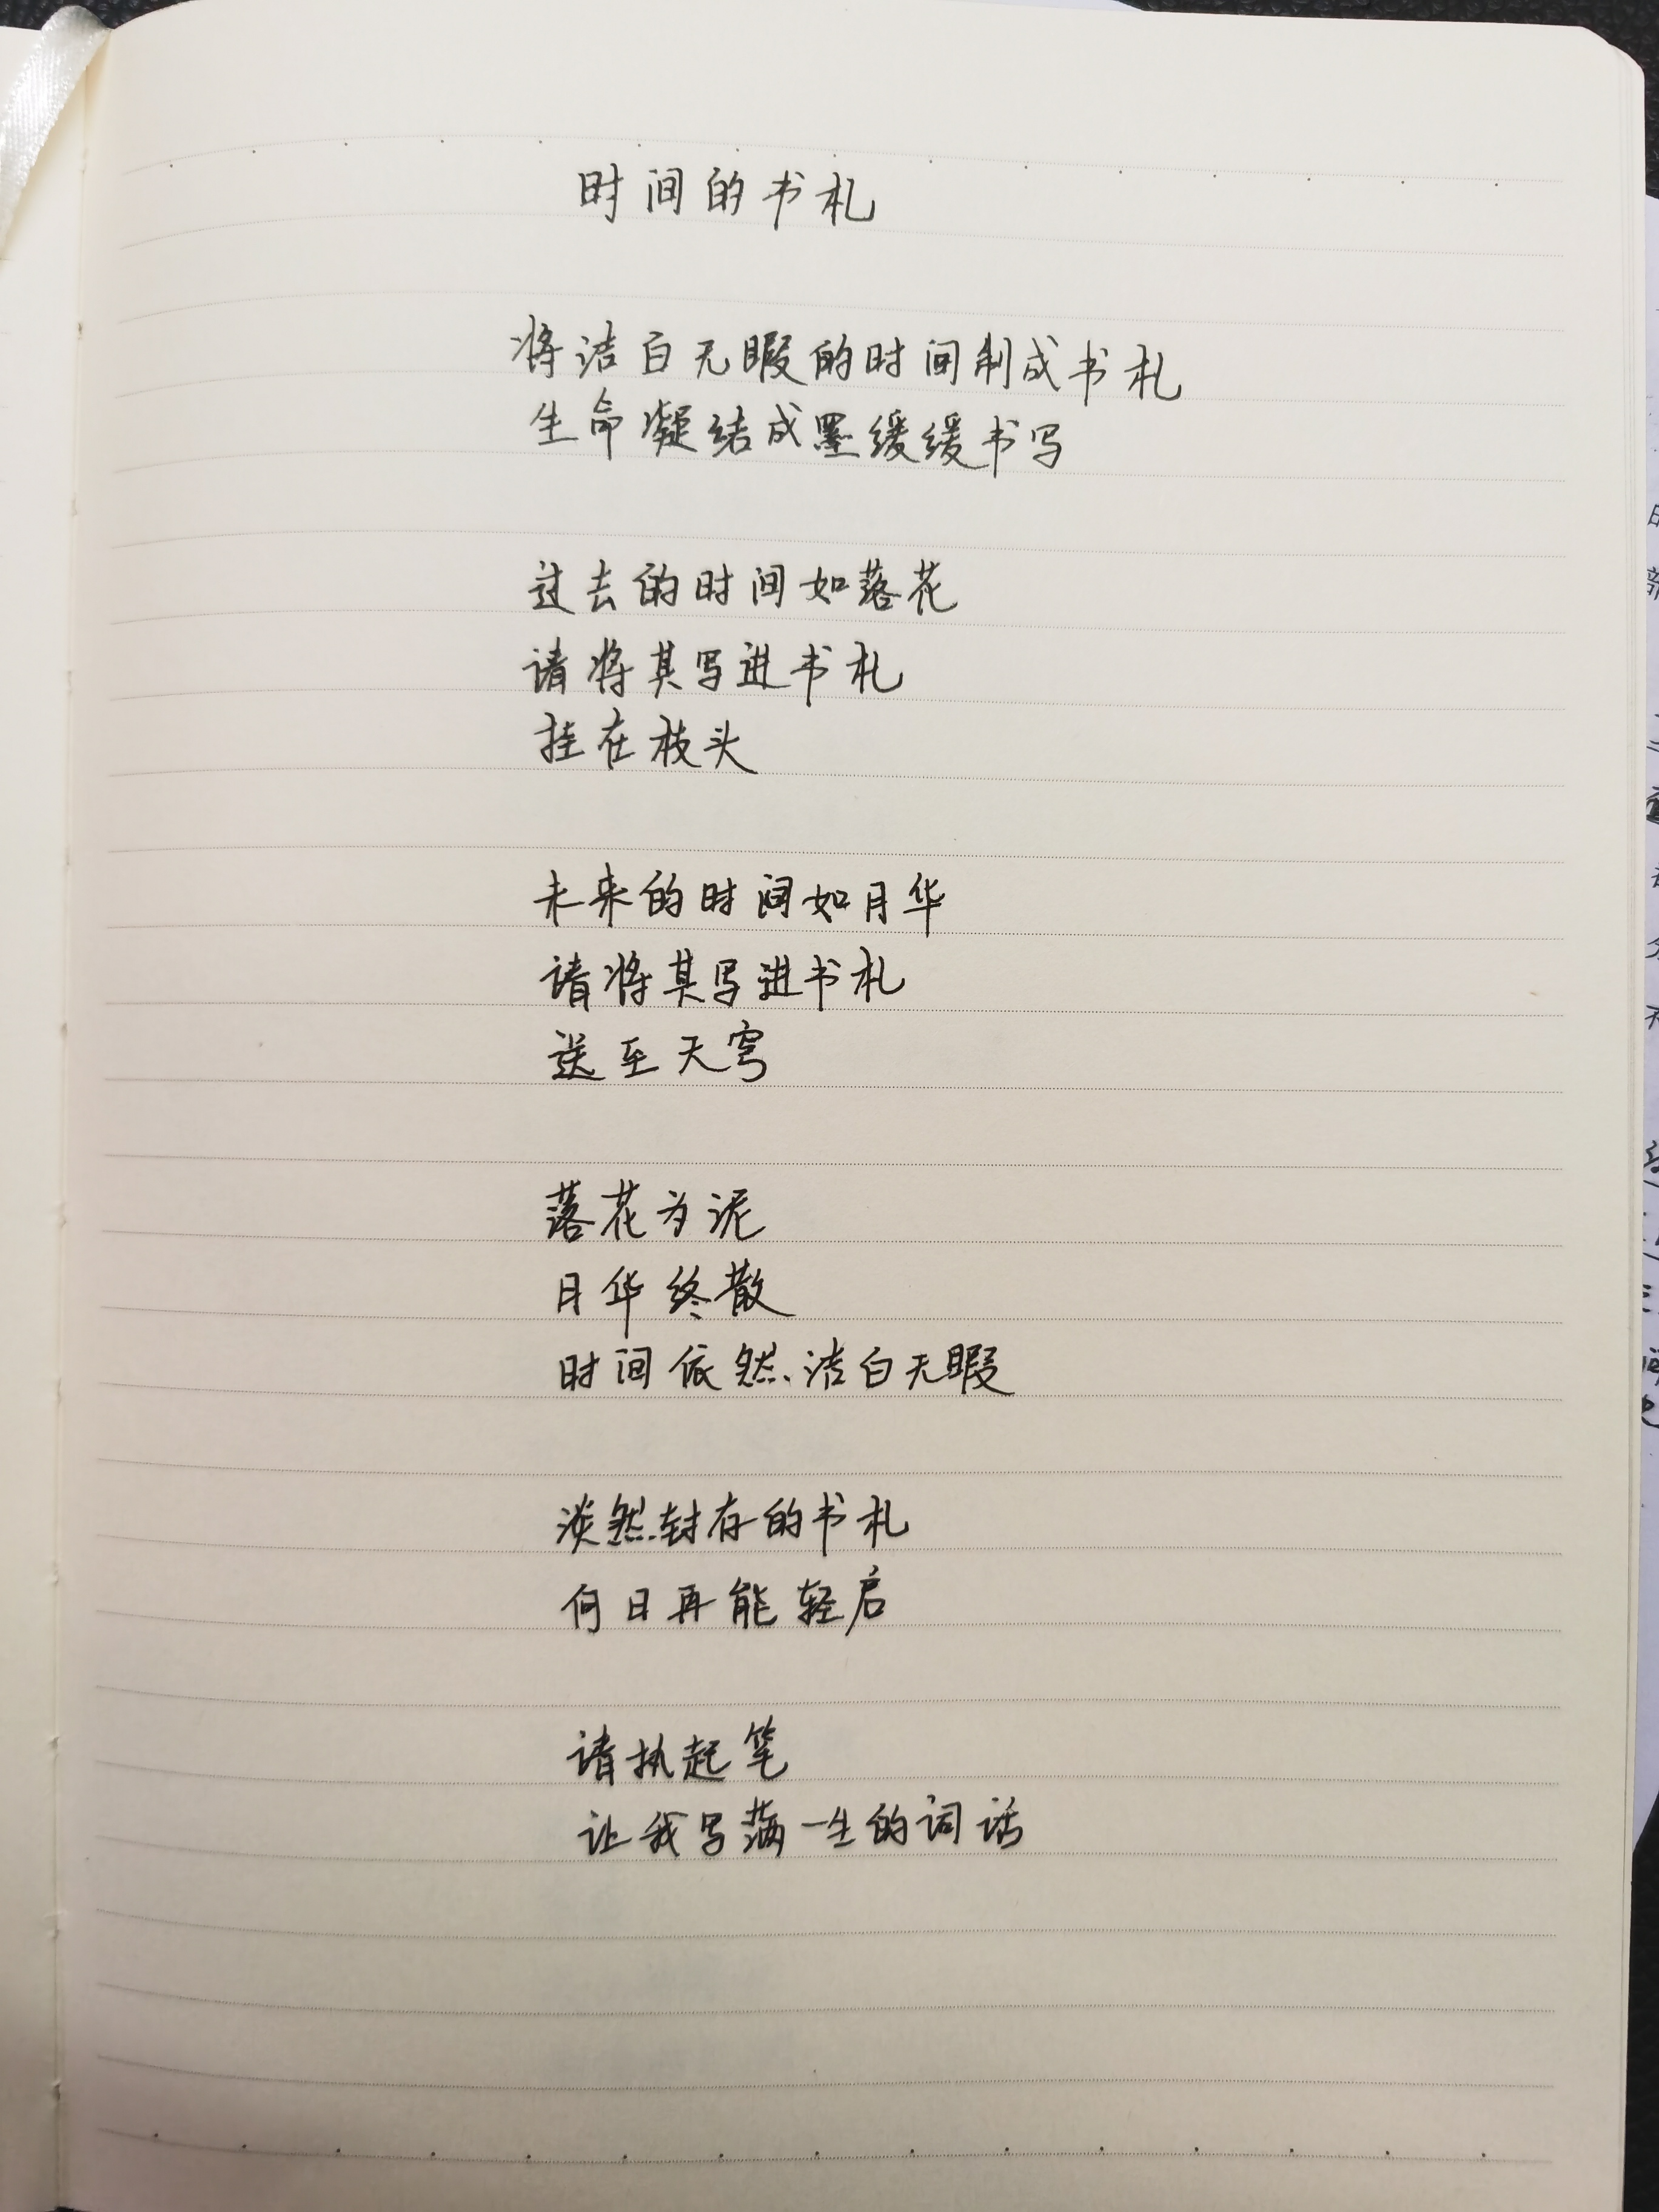 时间的书札
将洁白无暇的时间制成书札
生命凝结成墨缓缓书写
过去的时间如落花
请将其写进书札
挂在枝头
未来的时间如月华
请将其写进书札
送至天穹
落花为泥
月华终散
时间依然洁白无暇
淡然封存的书札
何日再能轻启
请执起笔
让我写满一生的词话